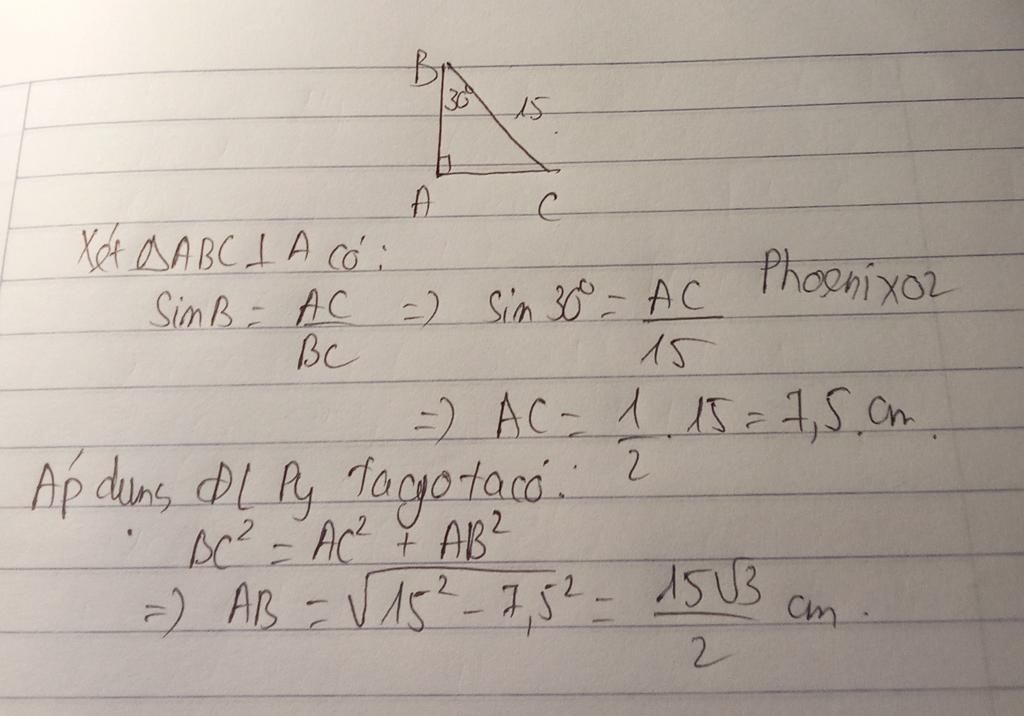 B
30°
15
A C
Xét ΔABC ⊥ A có:
SinB = AC/BC => Sin 30° = AC/15
Phoenix02
=> AC = 1/2 . 15 = 7,5 cm.
Áp dụng ĐL Py tago ta có:
BC² = AC² + AB²
=> AB = √(15² - 7,5²) = 15√3/2 cm.